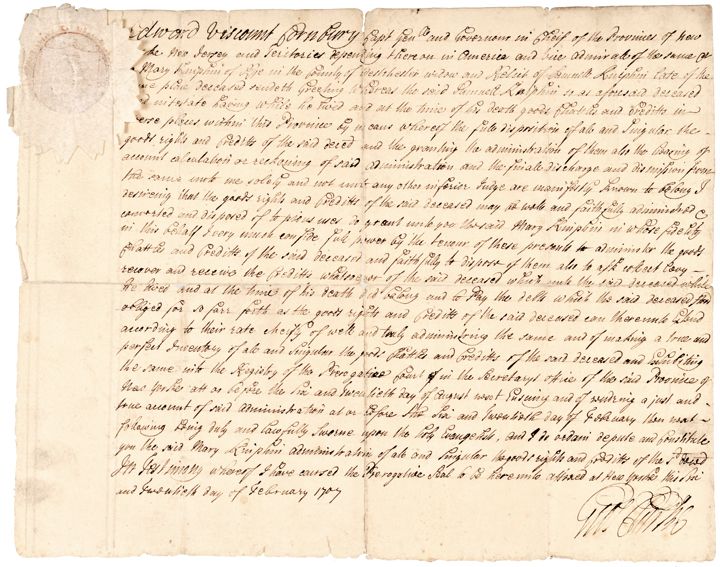 Edward Viscount Cornbury Capt Genll and Governour in Cheif of the Provinces of New
New Jersey and Territories depending thereon in America and Vice Admirall of the same
Mary Kniphin of Rye in the County of Westchester widow and Relict of Samuell Kniphin late of the
place deceased sendeth Greeting Whereas the said Samuell Kniphin so as aforesaid deceased
intestate having while he lived and at the time of his death goods Chattles and Creditts in
places within this Province by means whereof the full disposition of all and Singular the
goods rights and Creditts of the said deced and the granting the administration of them also the hearing of
account calculation or reckoning of said administration and the finall discharge and dismission from
the same unto me solely and not unto any other inferior Judge are manifestly known to belong I
desireing that the goods rights and Creditts of the said deceased may be well and faithfully administred
converted and disposed of to pious uses do grant unto you the said Mary Kniphin in whose fidelity
in this behalf I very much confide full power by the tenour of these presents to administer the goods
Chattles and Creditts of the said deceased and faithfully to dispose of them also to ask collect Levy
recover and receive the Creditts whatsoever of the said deceased which unto the said deceased while
he lived and at the time of his death did belong and to pay the debts which the said deceased stood
obliged for so farr forth as the goods rights and Creditts of the said deceased can thereunto Extend
according to their rate cheifly of well and truly administring the same and of making a true and
perfect Inventory of all and Singular the goods Chattles and Creditts of the said deceased and exhibiting
the same into the Registry of the Prerogative Court in the Secretarys office of the said Province of
New Yorke att or before the Six and twentieth day of August next Ensuing and of rendring a just and
true account of said administration at or before the Six and Twentieth day of February then next
following being duly and lawfully sworne upon the holy Evangelist, and I do ordain depute and Constitute
you the said Mary Kniphin administratrix of all and Singular the goods rights and Creditts of the sd deced
In Testimony whereof I have caused the Prerogative Seal to be hereunto affixed at New Yorke this Six
and Twentieth day of February 1707